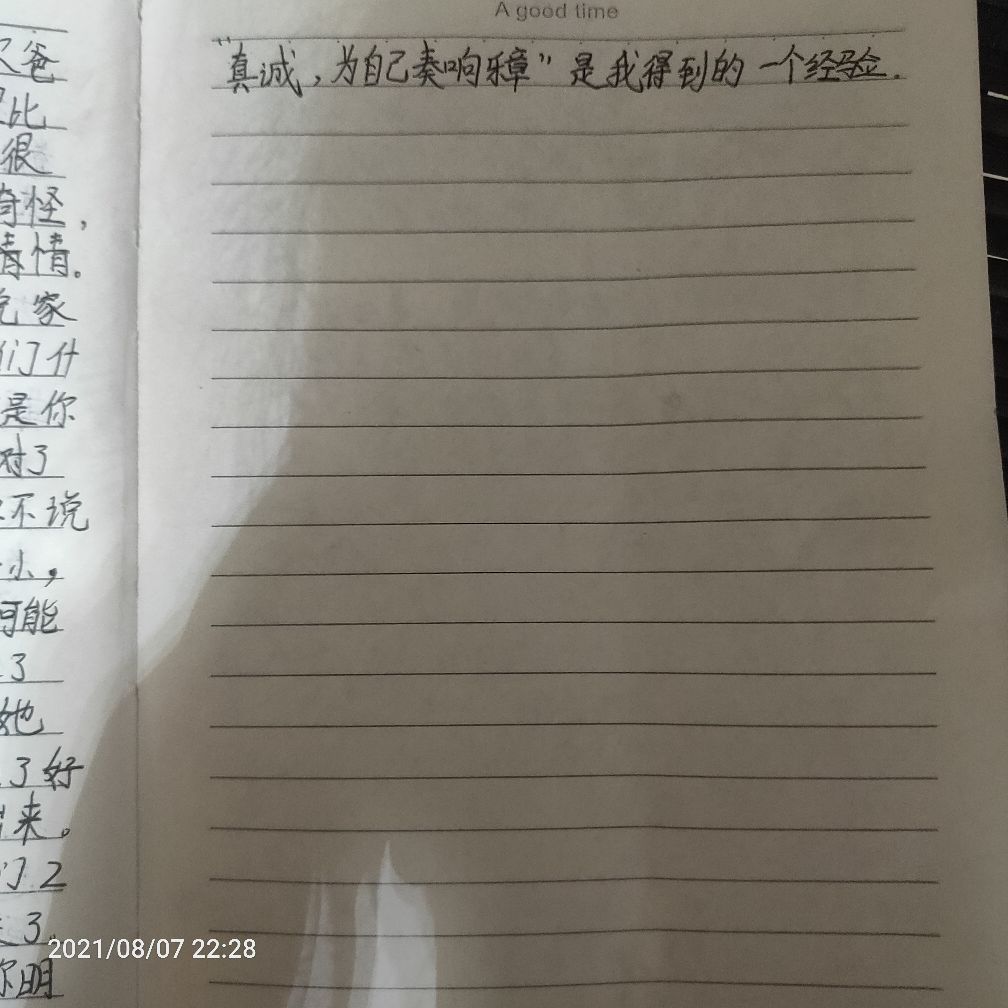 A good time
“真诚，为自己奏响乐章”是我得到的一个经验．
爸
比
很
奇怪，
情。
家
们什
是你
对了
不说
小，
可能
了
她
了好
来。
门2
了。
你明
2021/08/07 22:28